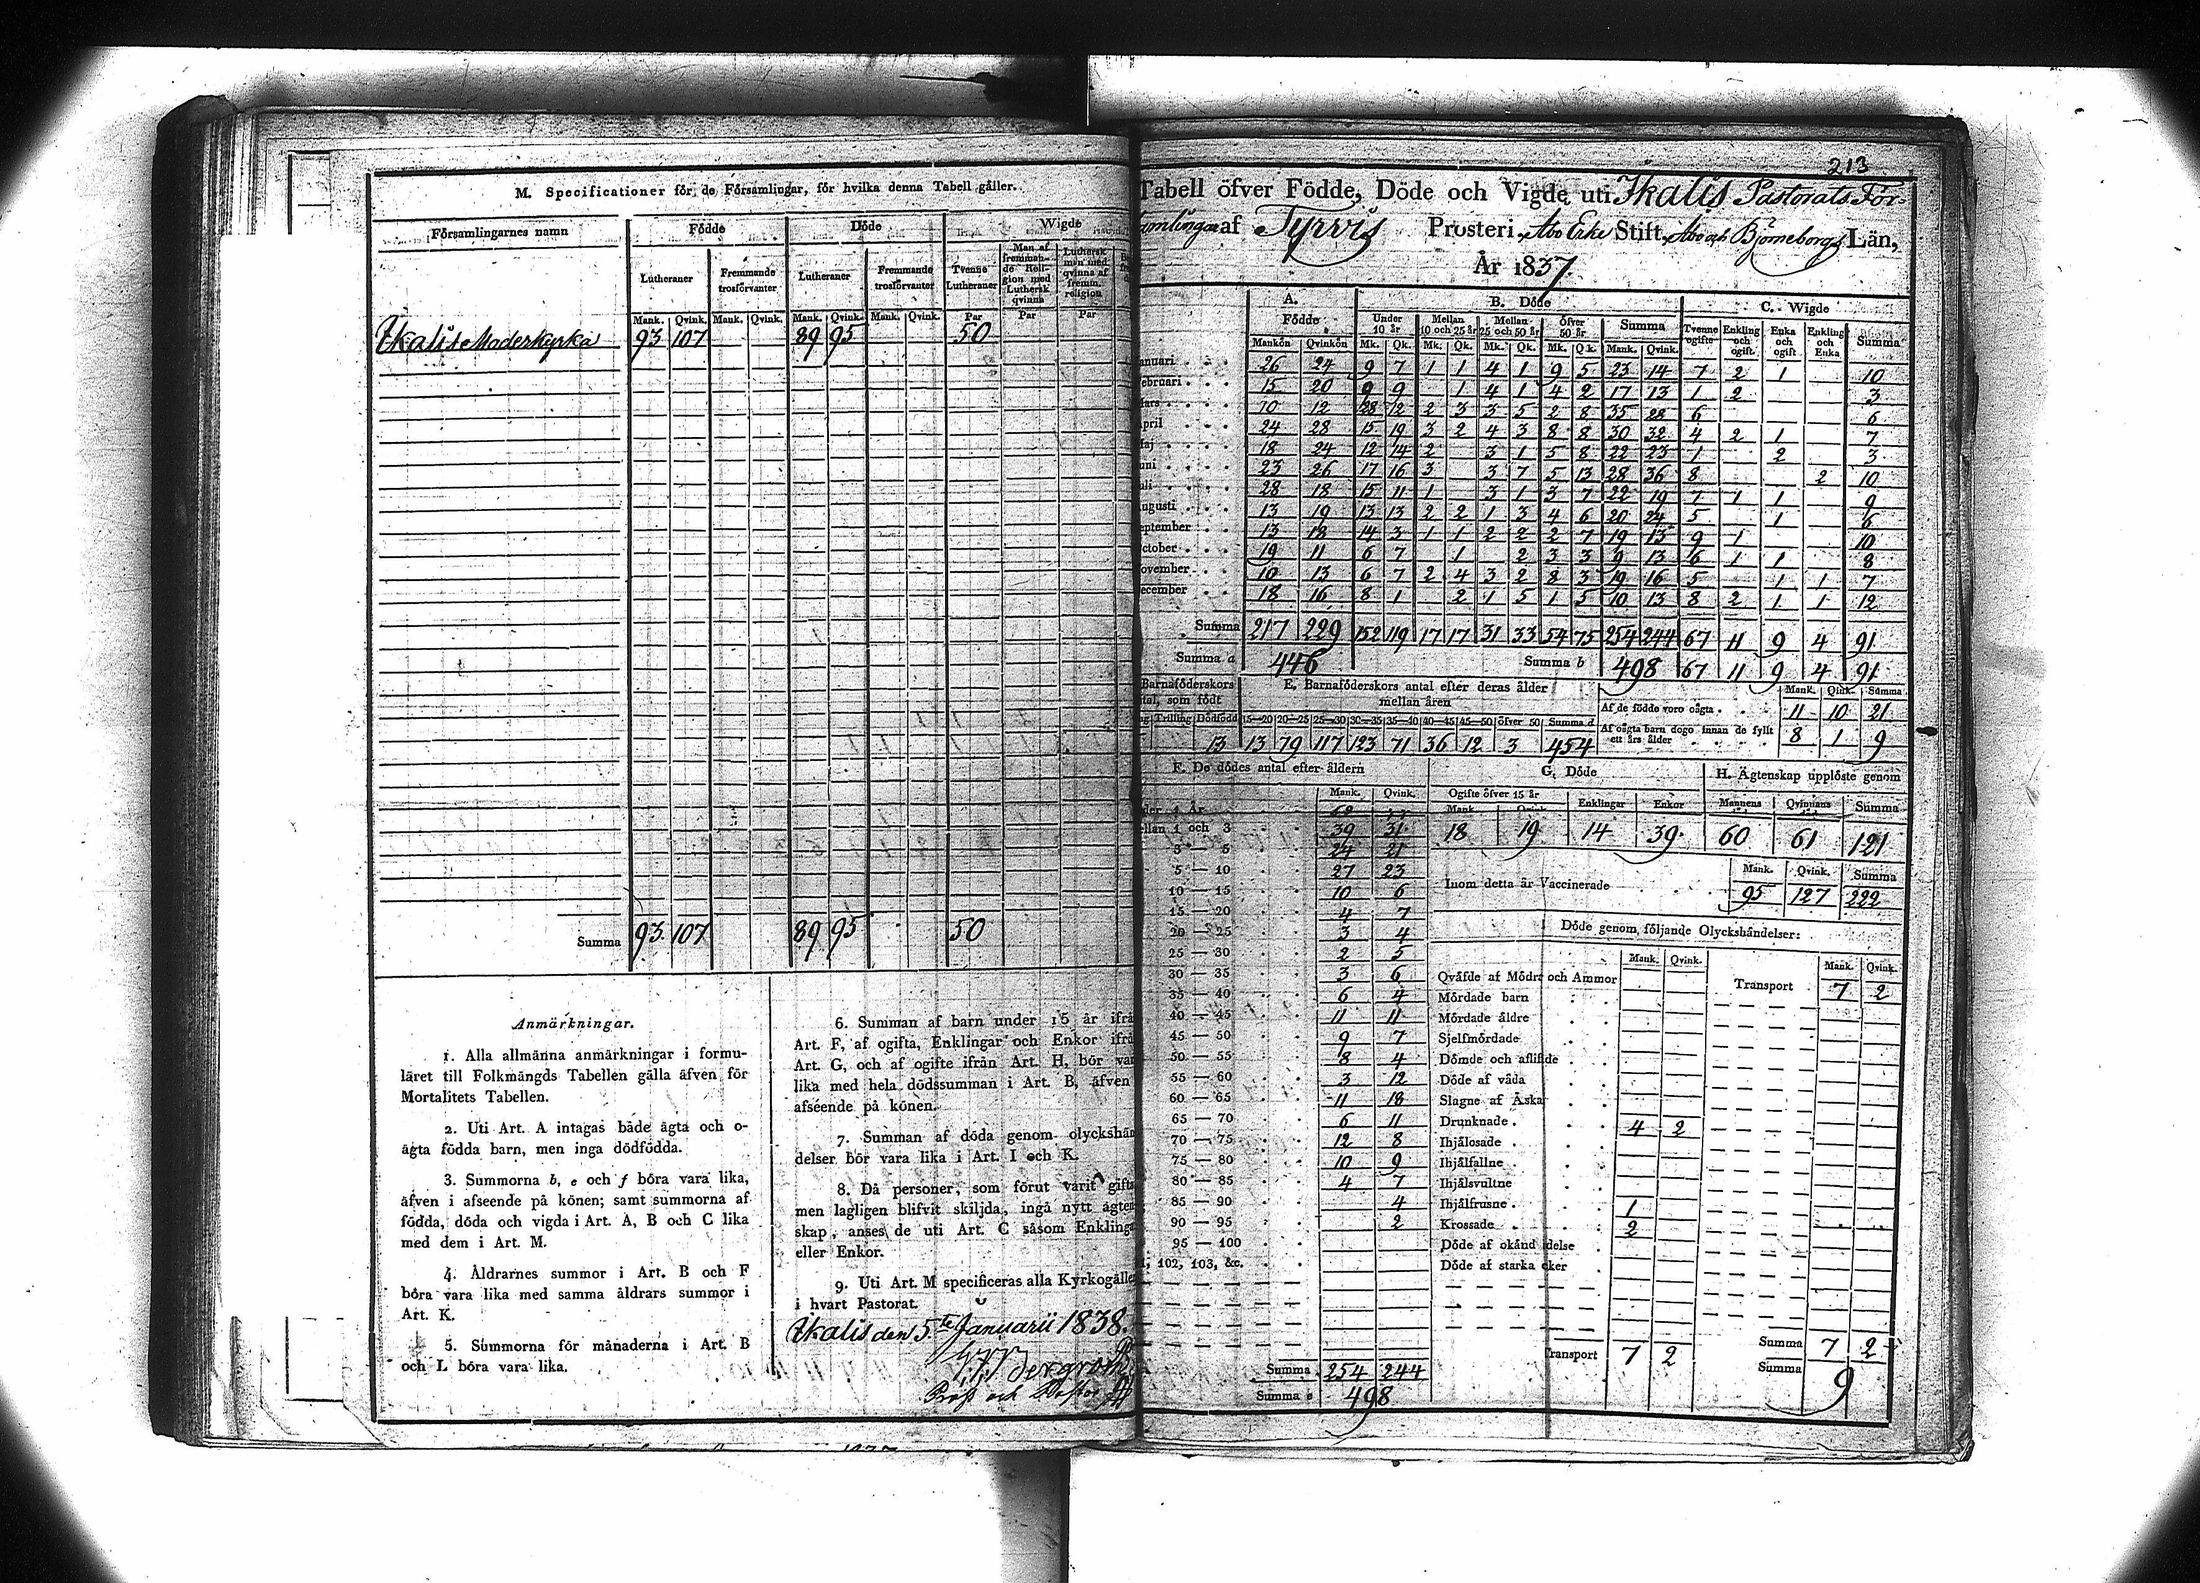 M. Specificationer för de Församlingar, för hvilka denna Tabell gäller.
Församlingarnes namn Födde Döde Wigde
Lutheraner Fremmande trosförvanter Lutheraner Fremmande trosförvanter Tvenne Lutheraner Man af fremmande Religion med Luthersk qvinna Luthersk man med qvinna af fremm. religion
Mank. Qvink. Mank. Qvink. Mank. Qvink. Mank. Qvink. Par Par Par
Ikalis Moderkyrka 93 107 89 95 50
Summa 93 107 89 95 50
Anmärkningar.
1. Alla allmänna anmärkningar i formu-
läret till Folkmängds Tabellen gälla äfven för
Mortalitets Tabellen.
2. Uti Art. A intagas både ägta och o-
ägta födda barn, men inga dödfödda.
3. Summorna b, e och f böra vara lika,
äfven i afseende på könen; samt summorna af
födda, döda och vigda i Art. A, B och C lika
med dem i Art. M.
4. Åldrarnes summor i Art. B och F
böra vara lika med samma åldrars summor i
Art. K.
5. Summorna för månaderna i Art. B
och L böra vara lika.
6. Summan af barn under 15 år ifrå
Art. F, af ogifta, Enklingar och Enkor ifrå
Art. G, och af ogifte ifrån Art. H, bör var
lika med hela dödssumman i Art. B, äfven
afseende på könen.
7. Summan af döda genom olyckshän
delser bör vara lika i Art. I och K.
8. Då personer, som förut varit gifta
men lagligen blifvit skiljda, ingå nytt ägten
skap, anses de uti Art. C såsom Enklinga
eller Enkor.
9. Uti Art. M specificeras alla Kyrkogälle
i hvart Pastorat.
Ikalis den 5te Januarii 1838.
Bergroth
213
Tabell öfver Födde, Döde och Vigde uti Ikalis Pastorats För-
samlingar af Tyrvis Prosteri Åbo Erke Stift Åbo och Björneborgs Län,
År 1837.
A. Födde B. Döde C. Wigde
Under 10 år Mellan 10 och 25 år Mellan 25 och 50 år öfver 50 år Summa Tvenne ogifte Enkling och ogift Enka och ogift Enkling och Enka Summa
Mankön Qvinkön Mk. Qk. Mk. Qk. Mk. Qk. Mk. Qk. Mank. Qvink.
anuari 26 24 9 7 1 1 4 1 9 5 23 14 7 2 1 10
ebruari 15 20 9 9 1 4 1 4 2 17 13 1 2 3
ars 10 12 28 12 2 3 3 5 2 8 35 28 6 6
april 24 28 15 19 3 2 4 3 8 8 30 32 4 2 1 7
aj 18 24 12 14 2 3 1 5 8 22 23 1 2 3
uni 23 26 17 16 3 3 7 5 13 28 36 8 2 10
uli 28 18 15 11 1 3 1 3 7 22 19 7 1 1 9
ugusti 13 19 13 13 2 2 1 3 4 6 20 24 5 1 6
eptember 13 18 14 3 1 1 2 2 2 7 19 13 9 1 10
ctober 19 11 6 7 1 2 3 3 9 13 6 1 1 8
ovember 10 13 6 7 2 4 3 2 8 3 19 16 5 1 1 7
ecember 18 16 8 1 2 1 5 1 5 10 13 8 2 1 1 12
Summa 217 229 152 119 17 17 31 33 54 75 254 244 67 11 9 4 91
Summa a 446 Summa b 498 67 11 9 4 91
Barnaföderskors tal, som födt
Trilling Dödfödd
13
E. Barnaföderskors antal efter deras ålder mellan åren
15—20 20—25 25—30 30—35 35—40 40—45 45—50 öfver 50 Summa d
13 79 117 123 71 36 12 3 454
Mank. Qink. Summa
Af de födde voro oägta 11 10 21
Af oägta barn dogo innan de fyllt ett års ålder 8 1 9
F. De dödes antal efter åldern
Mank. Qvink.
der 1 År
ellan 1 och 3 39 31
3 — 5 24 21
5 — 10 27 23
10 — 15 10 6
15 — 20 4 7
20 — 25 3 4
25 — 30 2 5
30 — 35 3 6
35 — 40 6 4
40 — 45 11 11
45 — 50 9 7
50 — 55 8 4
55 — 60 3 12
60 — 65 11 18
65 — 70 6 11
70 — 75 12 8
75 — 80 10 9
80 — 85 4 7
85 — 90 4
90 — 95 2
95 — 100
102, 103, &c.
Summa 254 244
Summa e 498
G. Döde
Ogifte öfver 15 år Enklingar Enkor
Mank. Qvink.
18 19 14 39
H. Ägtenskap upplöste genom
Mannens Qvinnans Summa
60 61 121
Mank. Qvink. Summa
Inom detta år Vaccinerade 95 127 222
Döde genom följande Olyckshändelser:
Mank. Qvink. Mank. Qvink.
Qväfde af Mödrar och Ammor
Transport 7 2
Mördade barn
Mördade äldre
Sjelfmördade
Dömde och aflifvde
Döde af våda
Slagne af Åska
Drunknade 4 2
Ihjälosade
Ihjälfallne
Ihjälsvultne
Ihjälfrusne 1
Krossade 2
Döde af okänd delse
Döde af starka cker
Transport 7 2
Summa 7 2
Summa 9